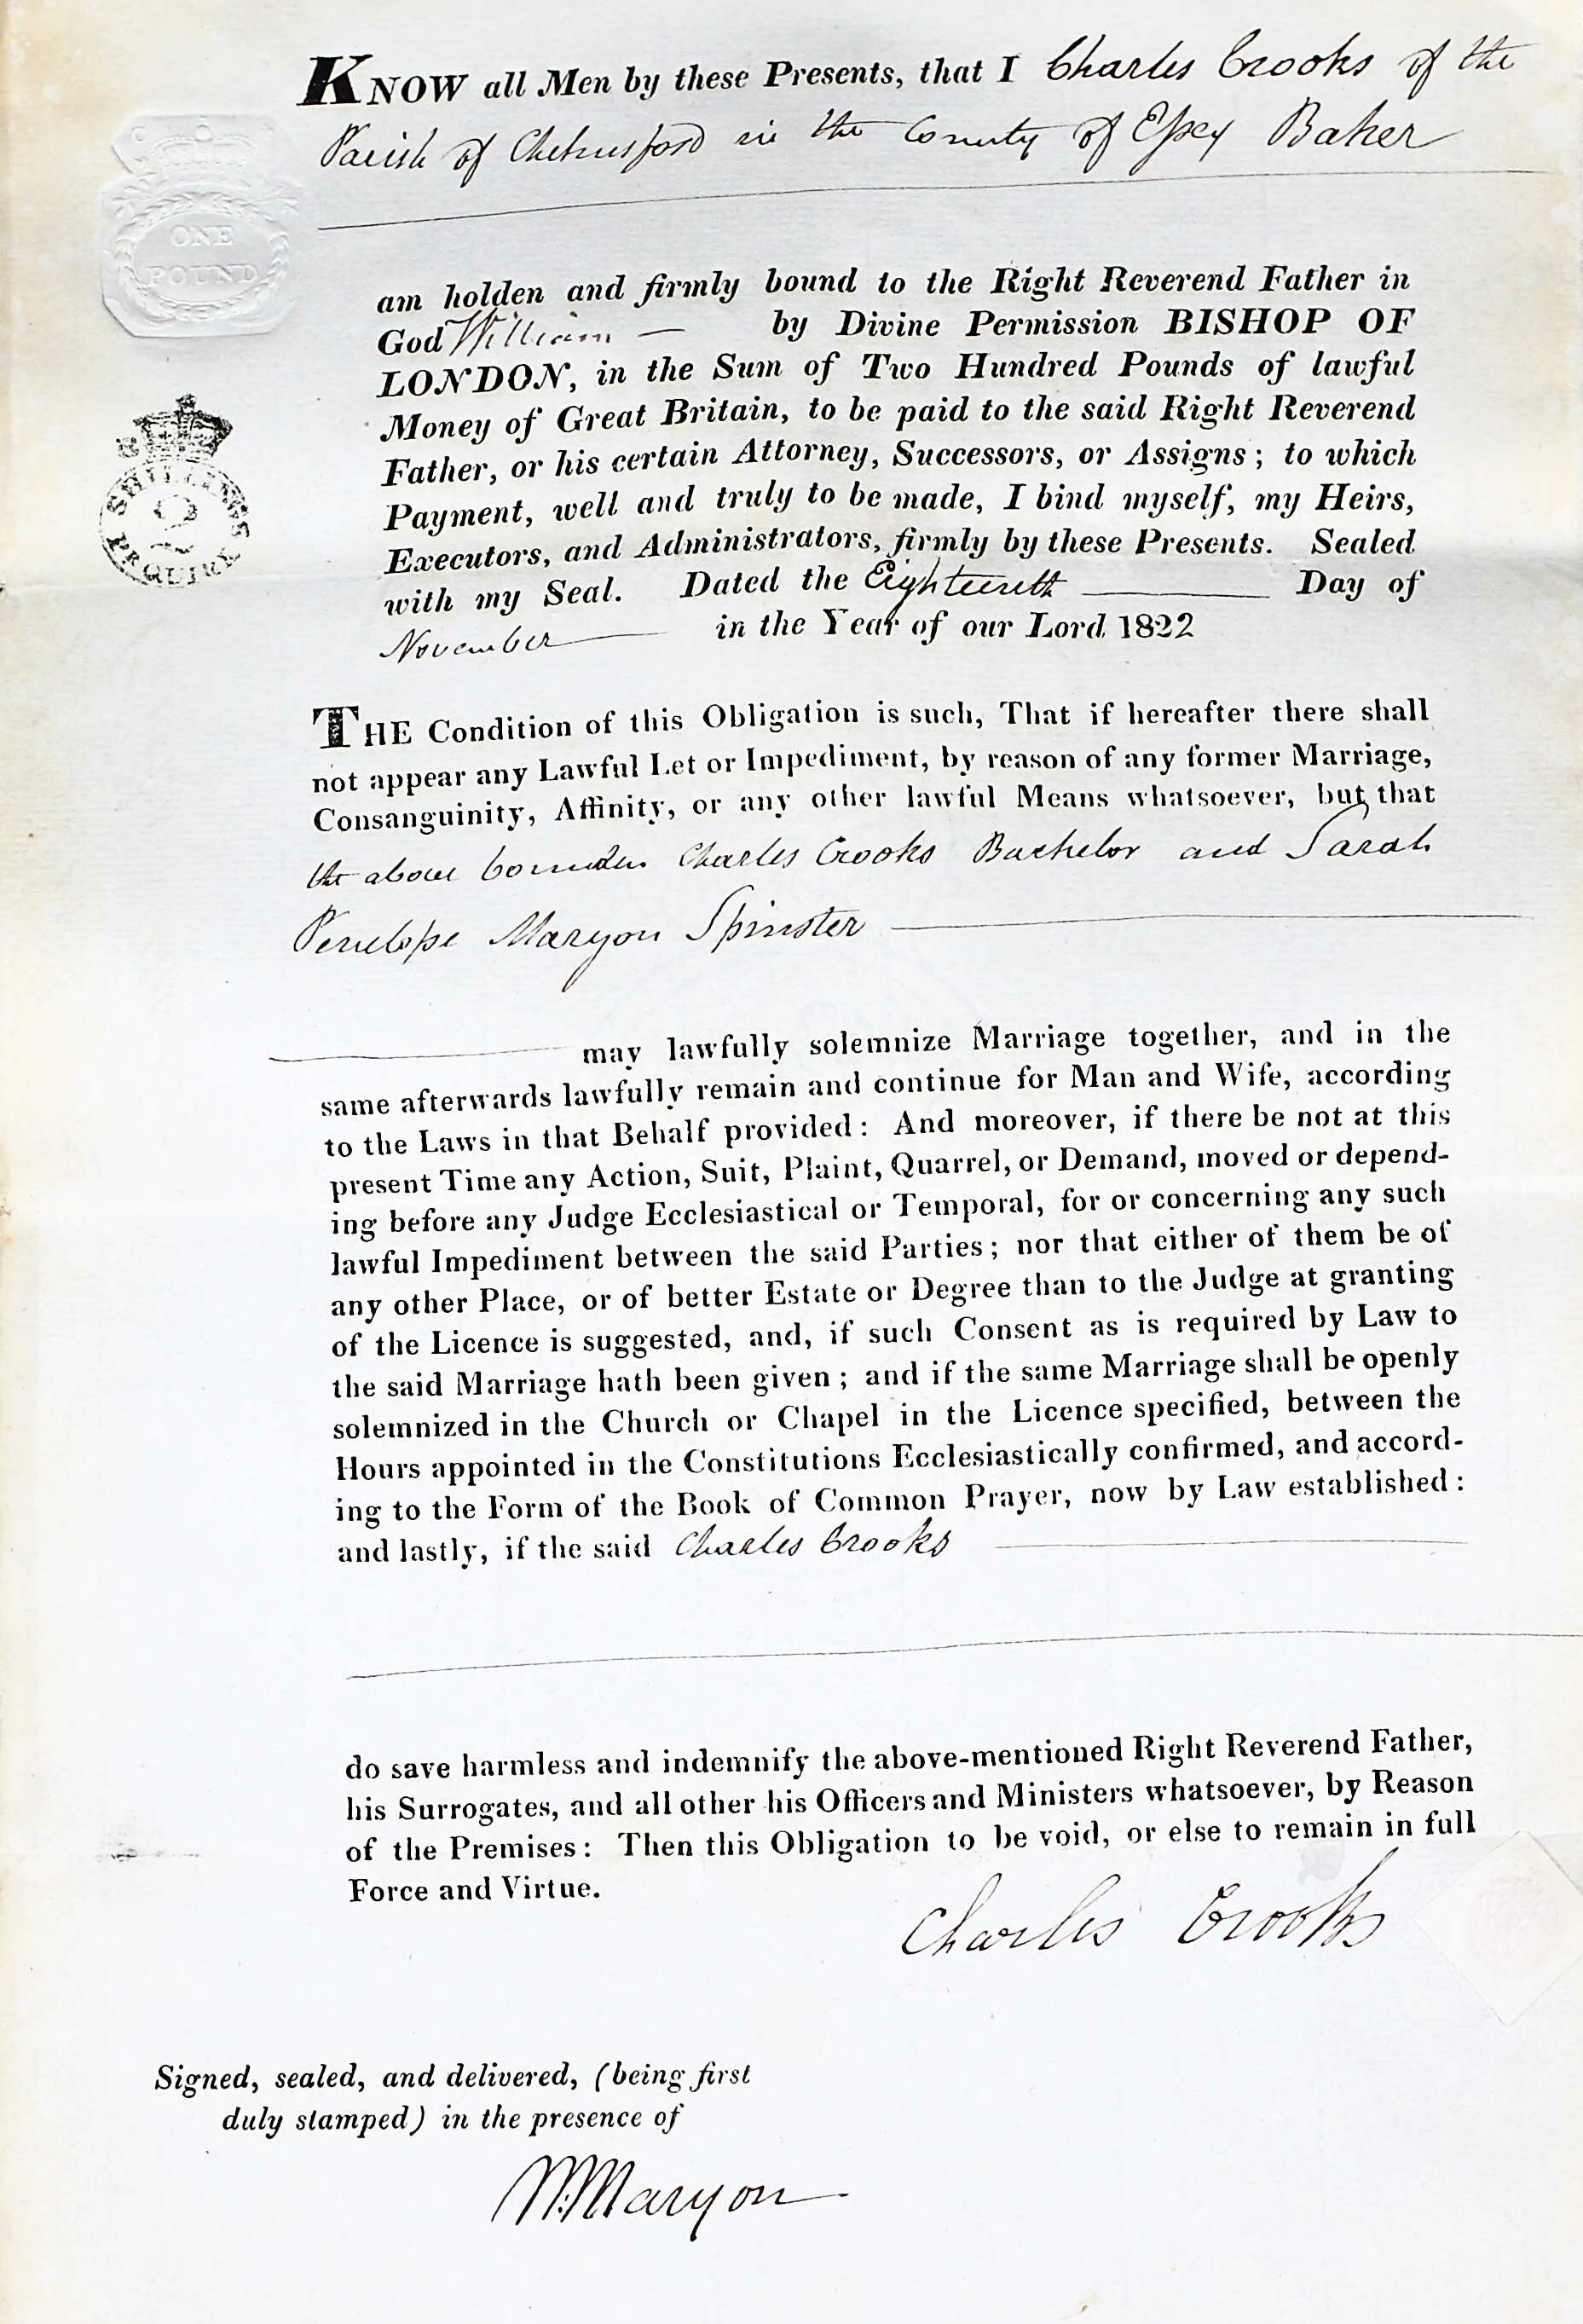 KNOW all Men by these Presents, that I Charles Crooks of the
Parish of Chelmsford in the County of Essex Baker
ONE
POUND
am holden and firmly bound to the Right Reverend Father in
God William — by Divine Permission BISHOP OF
LONDON, in the Sum of Two Hundred Pounds of lawful
Money of Great Britain, to be paid to the said Right Reverend
Father, or his certain Attorney, Successors, or Assigns; to which
Payment, well and truly to be made, I bind myself, my Heirs,
Executors, and Administrators, firmly by these Presents. Sealed
with my Seal. Dated the Eighteenth Day of
November in the Year of our Lord 1822
SHILLINGS
2
PR QUIRE
THE Condition of this Obligation is such, That if hereafter there shall
not appear any Lawful Let or Impediment, by reason of any former Marriage,
Consanguinity, Affinity, or any other lawful Means whatsoever, but that
the above bounden Charles Crooks Bachelor and Sarah
Penelope Maryon Spinster
may lawfully solemnize Marriage together, and in the
same afterwards lawfully remain and continue for Man and Wife, according
to the Laws in that Behalf provided: And moreover, if there be not at this
present Time any Action, Suit, Plaint, Quarrel, or Demand, moved or depend-
ing before any Judge Ecclesiastical or Temporal, for or concerning any such
lawful Impediment between the said Parties; nor that either of them be of
any other Place, or of better Estate or Degree than to the Judge at granting
of the Licence is suggested, and, if such Consent as is required by Law to
the said Marriage hath been given; and if the same Marriage shall be openly
solemnized in the Church or Chapel in the Licence specified, between the
Hours appointed in the Constitutions Ecclesiastically confirmed, and accord-
ing to the Form of the Book of Common Prayer, now by Law established:
and lastly, if the said Charles Crooks
do save harmless and indemnify the above-mentioned Right Reverend Father,
his Surrogates, and all other his Officers and Ministers whatsoever, by Reason
of the Premises: Then this Obligation to be void, or else to remain in full
Force and Virtue.
Charles Crooks
Signed, sealed, and delivered, (being first
duly stamped) in the presence of
W. Maryon